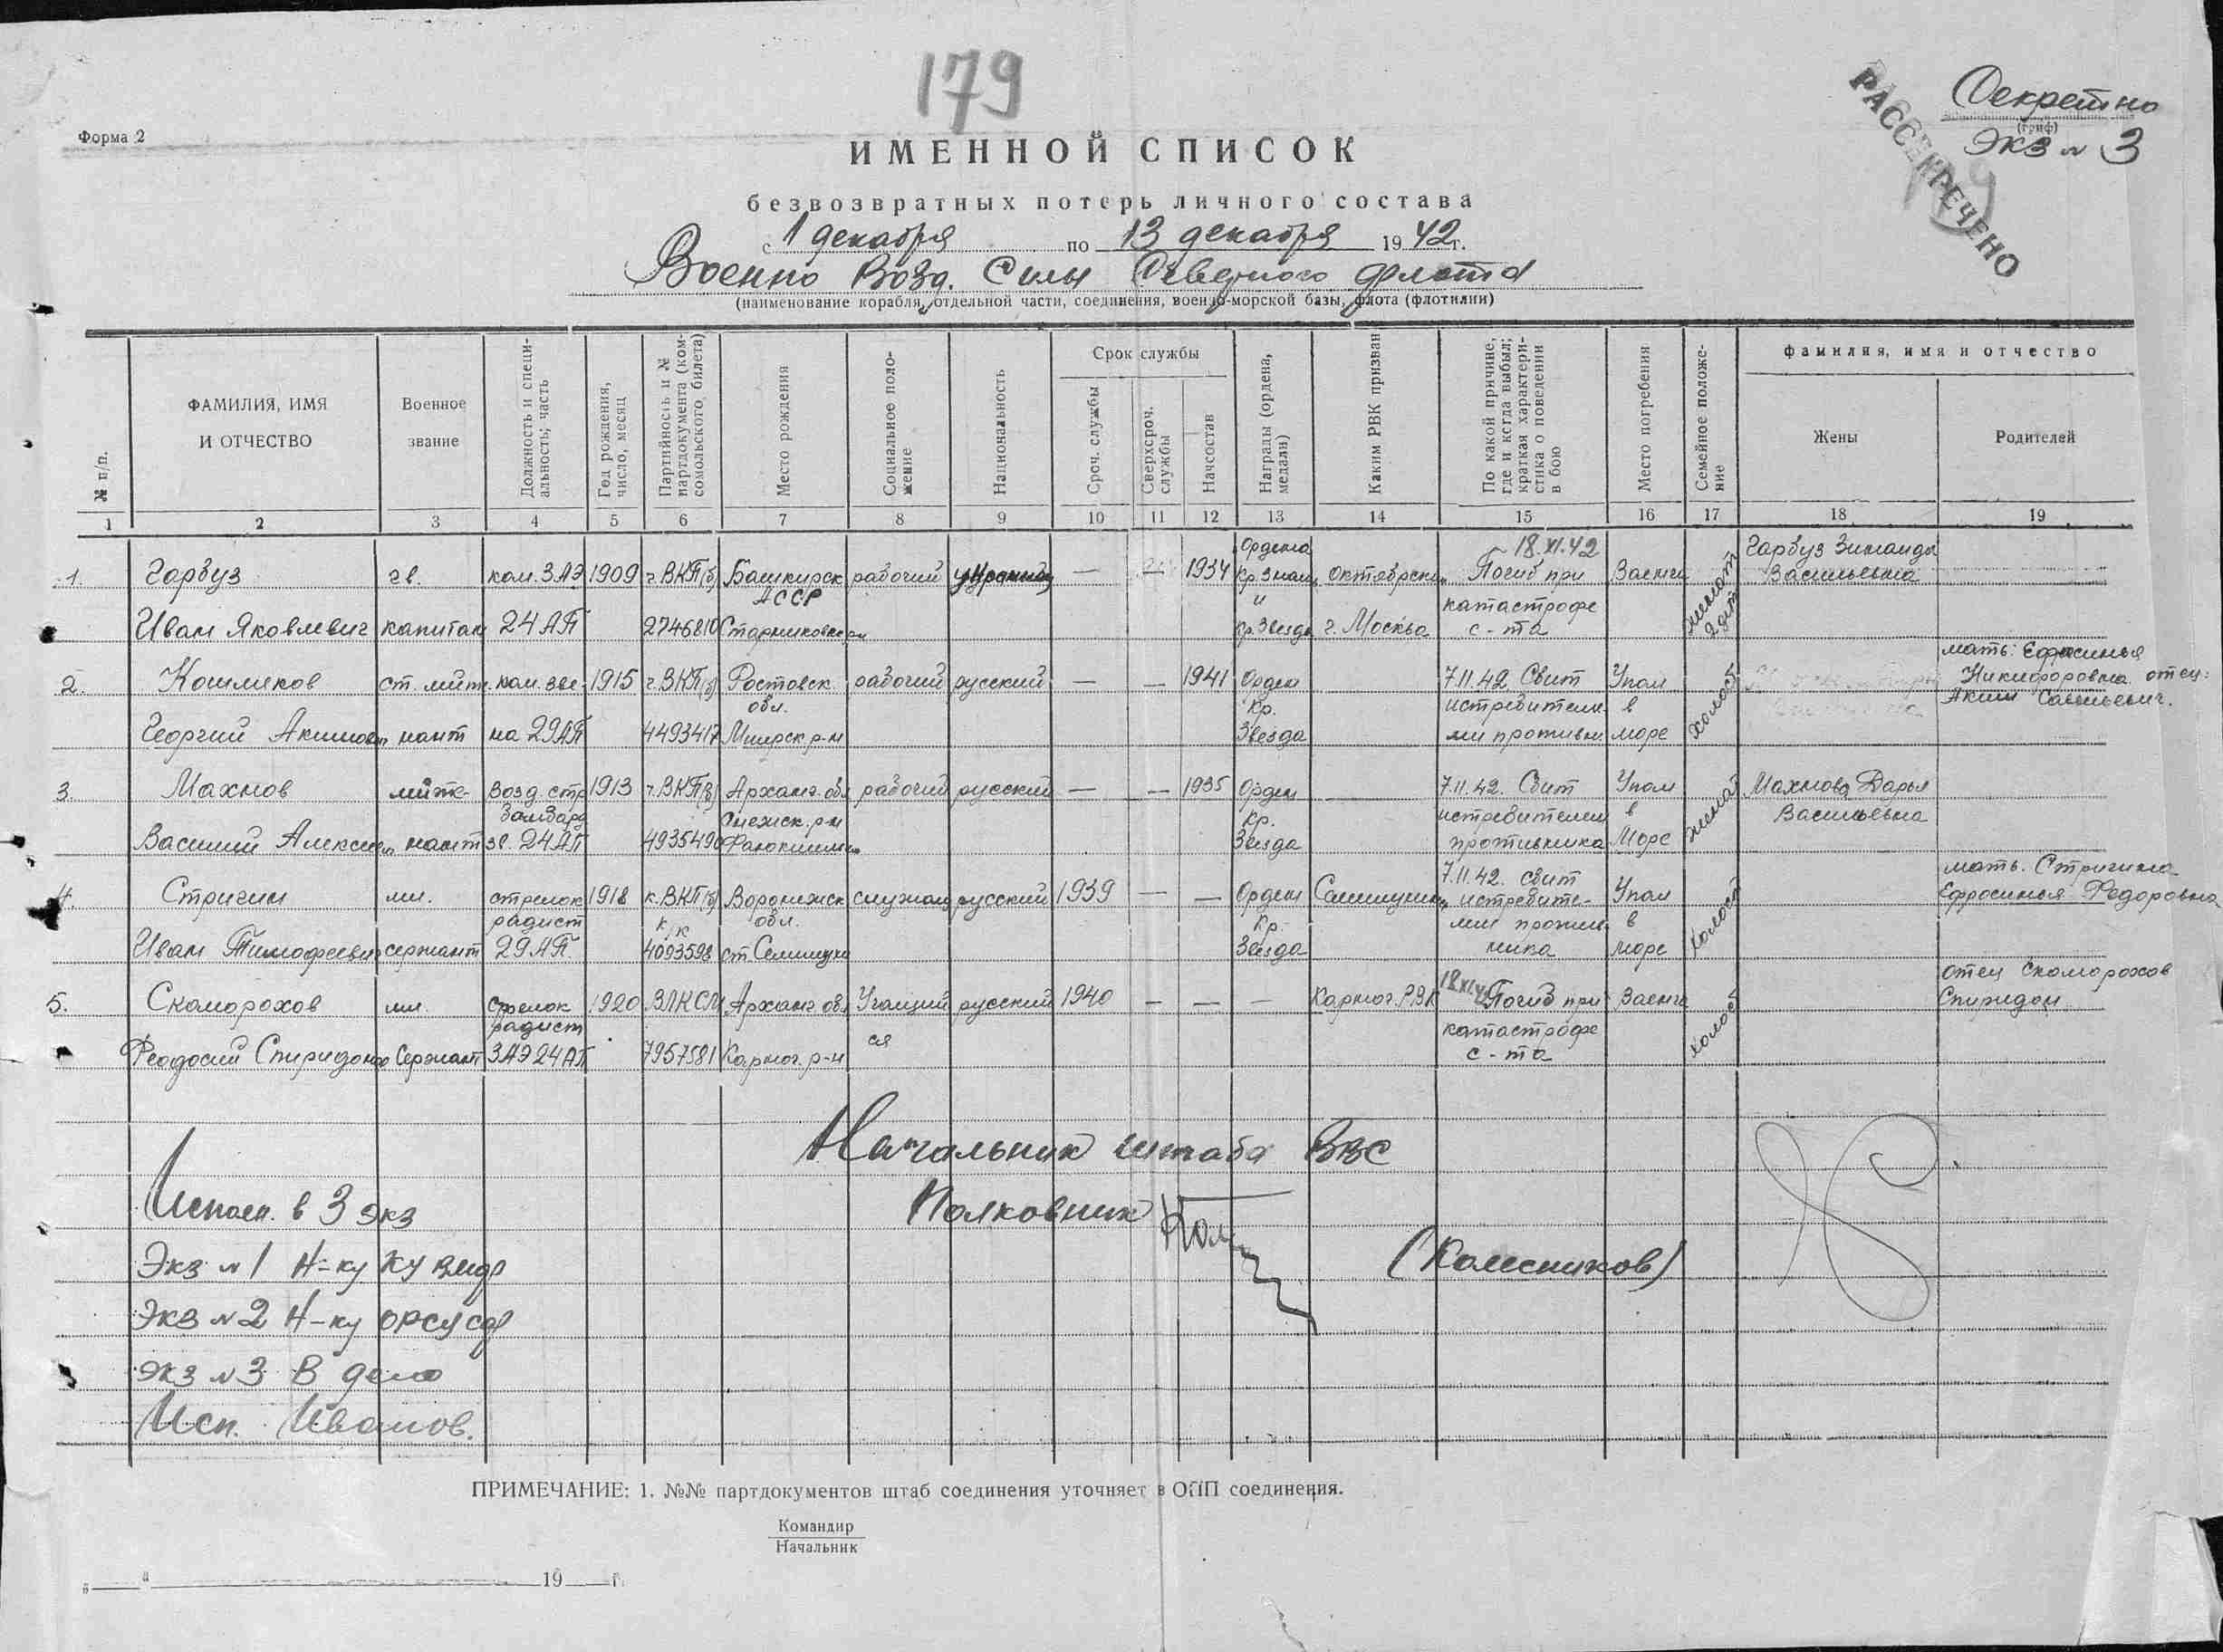 179
Секретно
(гриф)
Экз № 3
РАССЕКРЕЧЕНО
Форма 2
ИМЕННОЙ СПИСОК
безвозвратных потерь личного состава
с 1 декабря по 13 декабря 1942 г.
Военно Возд. Силы Северного флота
(наименование корабля, отдельной части, соединения, военно-морской базы, флота (флотилии)
№ п/п.
ФАМИЛИЯ, ИМЯ
И ОТЧЕСТВО
Военное
звание
Должность и специ-
альность; часть
Год рождения,
число, месяц
Партийность и №
партдокумента (ком-
сомольского билета)
Место рождения
Социальное поло-
жение
Национальность
Срок службы
Сроч. службы
Сверхсроч.
службы
Начсостав
Награды (ордена,
медали)
Каким РВК призван
По какой причине,
где и когда выбыл;
краткая характери-
стика о поведении
в бою
Место погребения
Семейное положе-
ние
фамилия, имя и отчество
Жены
Родителей
1 2 3 4 5 6 7 8 9 10 11 12 13 14 15 16 17 18 19
Ордена 18.XI.42 Гарбуз Зинаида
1. Гарбуз гв. ком. 3 АЭ 1909 ч. ВКП(б) Башкирск рабочий — — 1934 Кр. Знам Погиб при Ваенга женат Васильевна
АССР и катастрофе 2 дит
Иван Яковлевич капитан 24 АП 2746810 Кр. Звезда г. Москва с-та
мать: Ефросинья
2. Кошляков ст. лейте- ком. зве- 1915 ч. ВКП(б) Ростовск рабочий русский — — 1941 Орден 7.11.42 Сбит Упал холост Никифоровна отец:
обл. Кр. истребителя- в Аким Савельевич.
Георгий нант на 29АП 4493417 Звезда ми против море
3. Махнов лейте- Возд. стр 1913 ч. ВКП(б) Арханг. обл рабочий русский — — 1935 Орден — 7.11.42. Сбит Упал женат Махнова Дарья
Кр. истребителем в Васильевна
Василий нант 24 АП 4935490 Звезда противника Море
7.11.42. сбит мать. Стригина
4. Стригин мл. стрелок 1918 к. ВКП(б) Воронежск русский 1939 — — Орден истребите- Упал холост Ефросинья Федоровна
радист к/к обл. Кр. лями против в
Иван Тимофеевич сержант 29 АП. 4093598 ст Семилуки Звезда ника море
18.XI.42 отец Скоморохов
5. Скоморохов мл. Стрелок 1920 ВЛКСМ Арханг. обл Учащий русский 1940 — — — Каргоп. РВК Погиб при Ваенга холост Спиридон
радист ся катастрофе
Феодосий Сержант 3АЭ 24 АП 7957581 Каргоп. р-н с-та
Начальник штаба ВВС
Полковник
(Колесников)
Исполн. в 3 экз
Экз №1 Н-ку КУ ВМФ
Экз №2 Н-ку ОРСУ СФ
Экз №3 В дело
Исп. Иванов.
ПРИМЕЧАНИЕ: 1. №№ партдокументов штаб соединения уточняет в ОПП соединения.
Командир
Начальник
„ " 19 г.